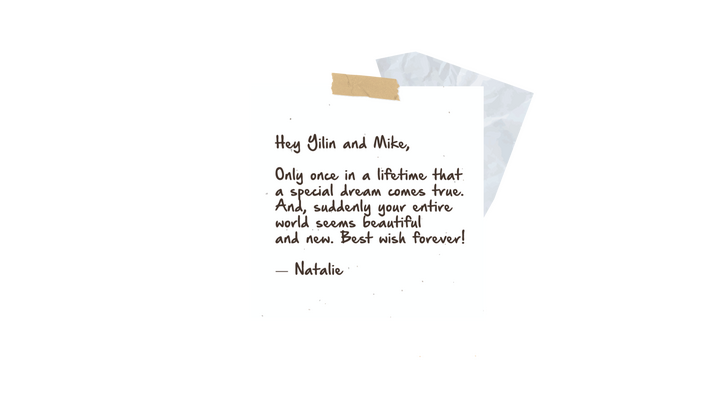 Hey Yilin and Mike,
Only once in a lifetime that
a special dream comes true.
And, suddenly your entire
world seems beautiful
and new. Best wish forever!
— Natalie